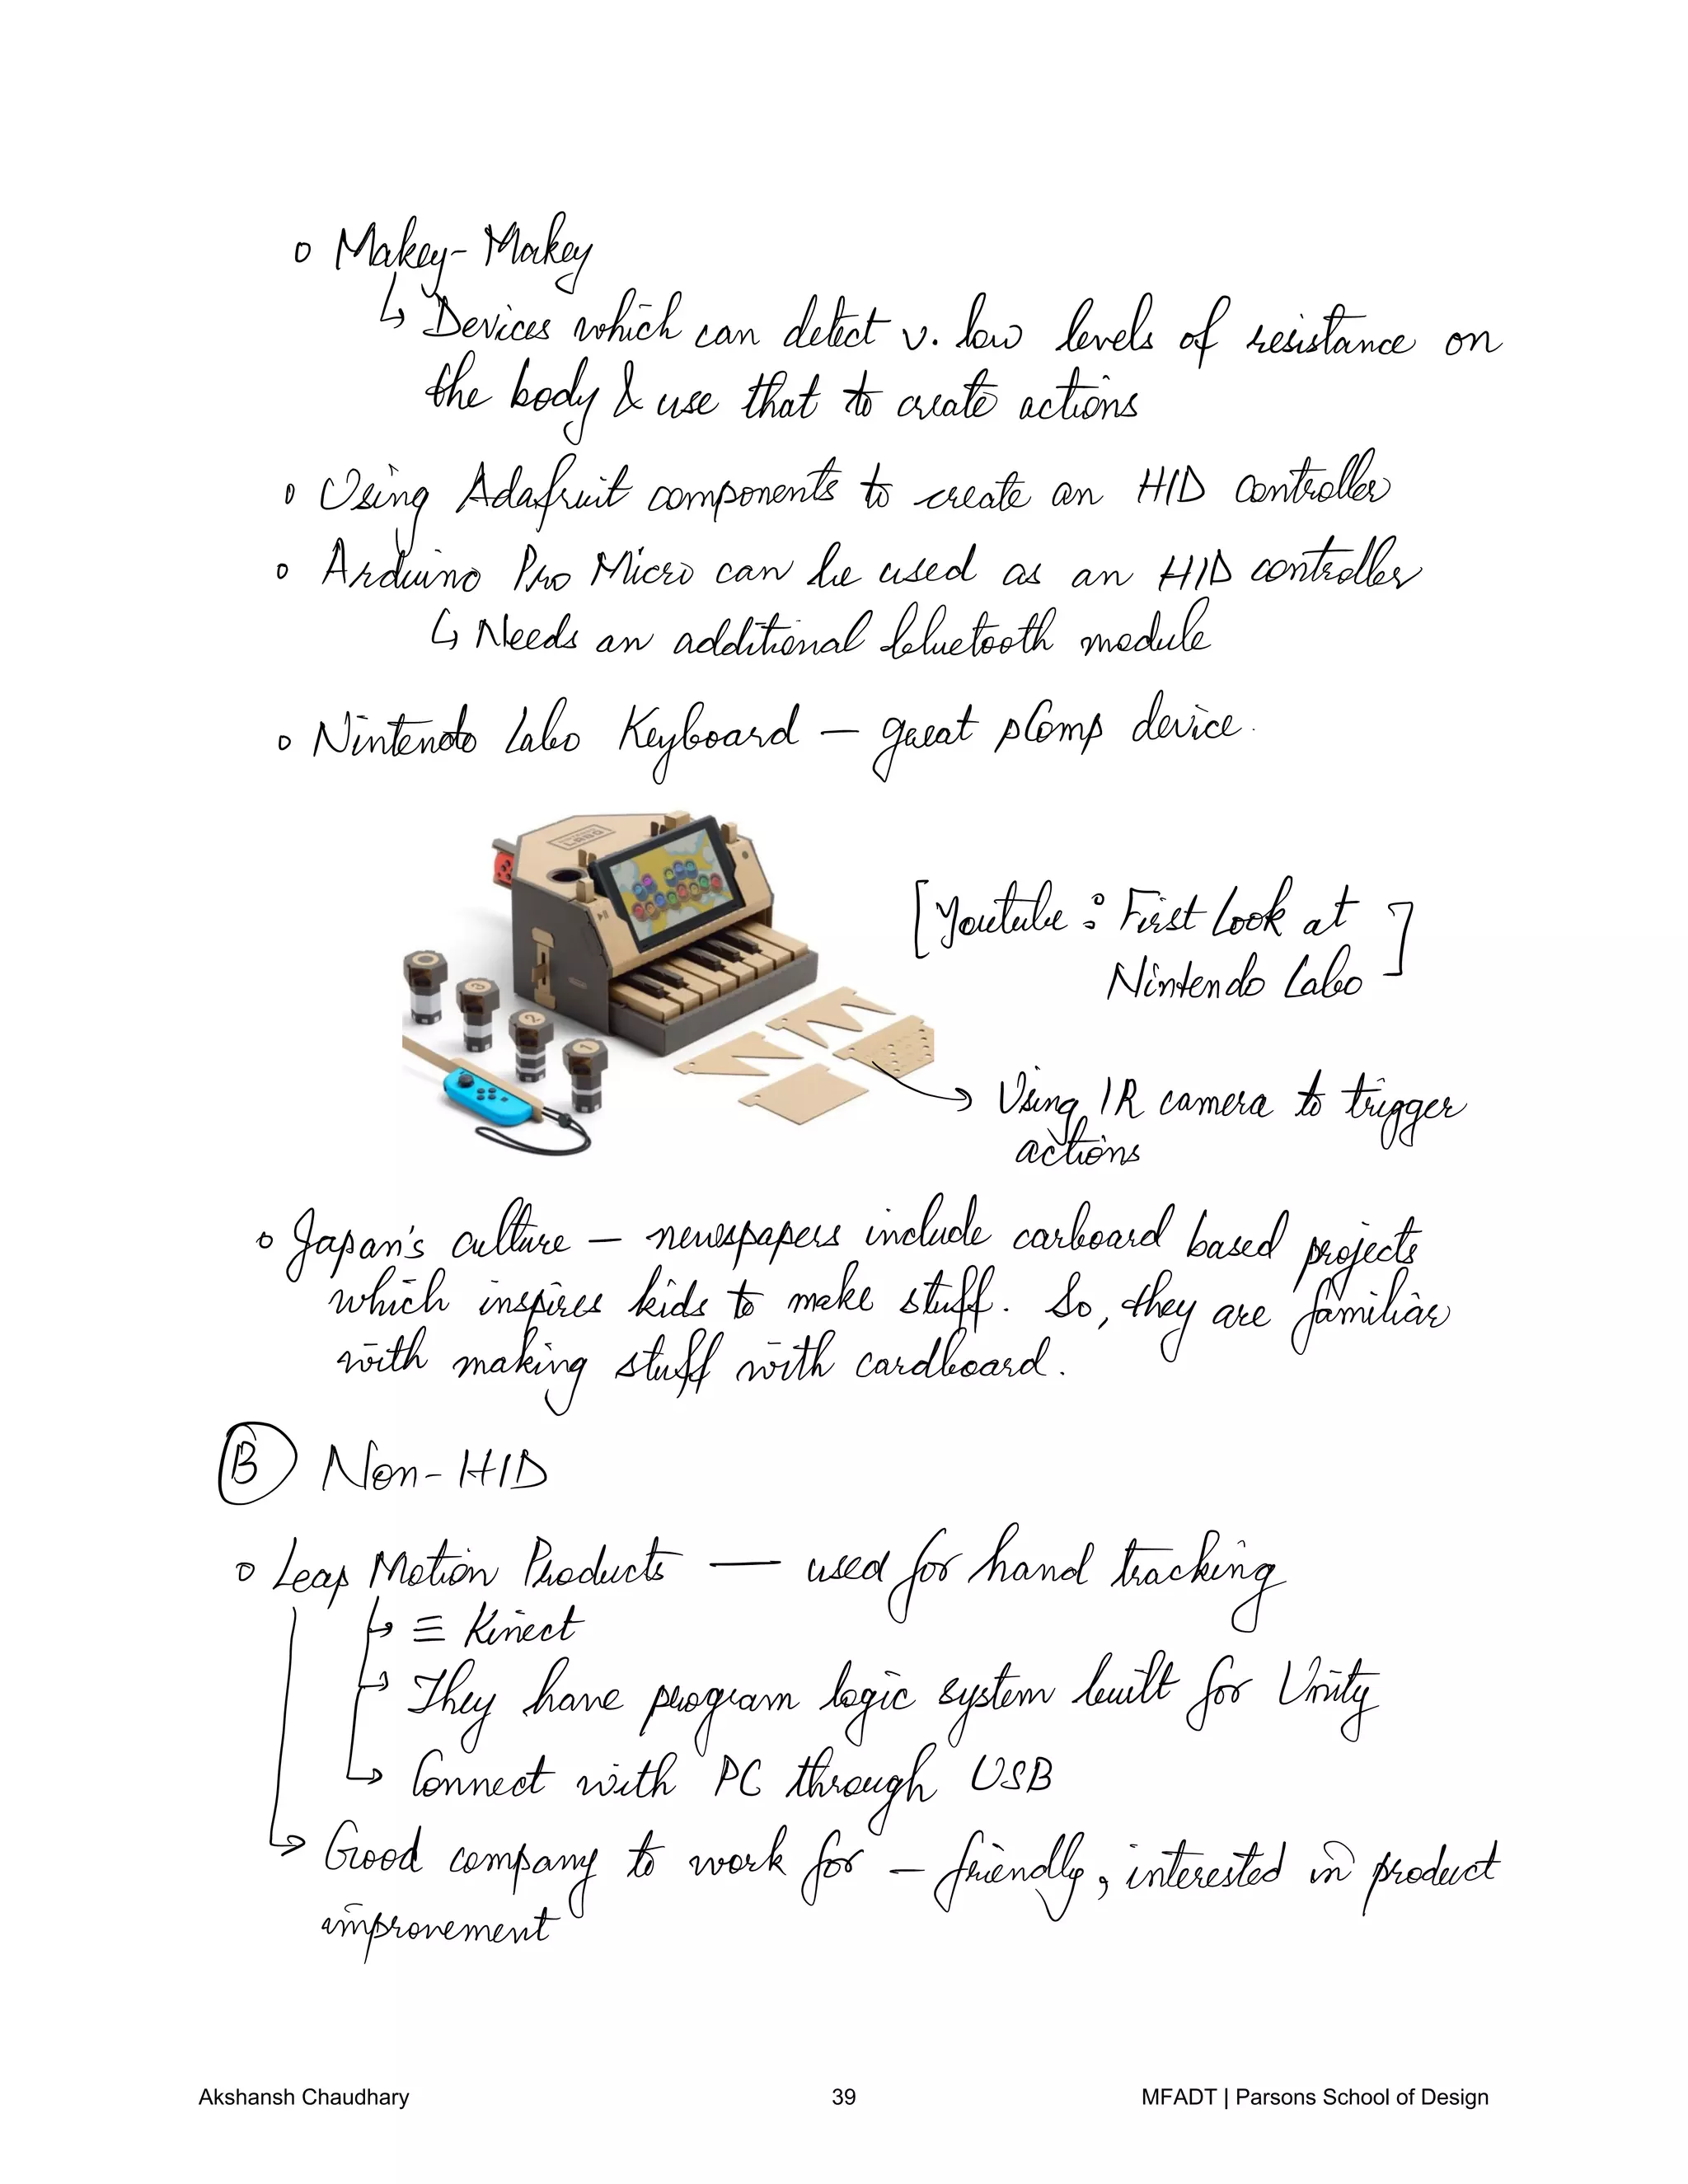 o Makey-Makey
↳ Devices which can detect v. low levels of resistance on
the body & use that to create actions
o Using Adafruit components to create an HID controller
o Arduino Pro Micro can be used as an HID controller
↳ Needs an additional bluetooth module
o Nintendo Labo Keyboard — great pComp device.
LABO
[Youtube : First Look at
Nintendo Labo]
3
2
1
→ Using IR camera to trigger
actions
o Japan's culture — newspapers include carboard based projects
which inspires kids to make stuff. So, they are familiar
with making stuff with cardboard.
Ⓑ Non-HID
o Leap Motion Products — used for hand tracking
↳ ≡ Kinect
↳ They have program logic system built for Unity
↳ Connect with PC through USB
↳ Good company to work for — friendly, interested in product
improvement
Akshansh Chaudhary 39 MFADT | Parsons School of Design